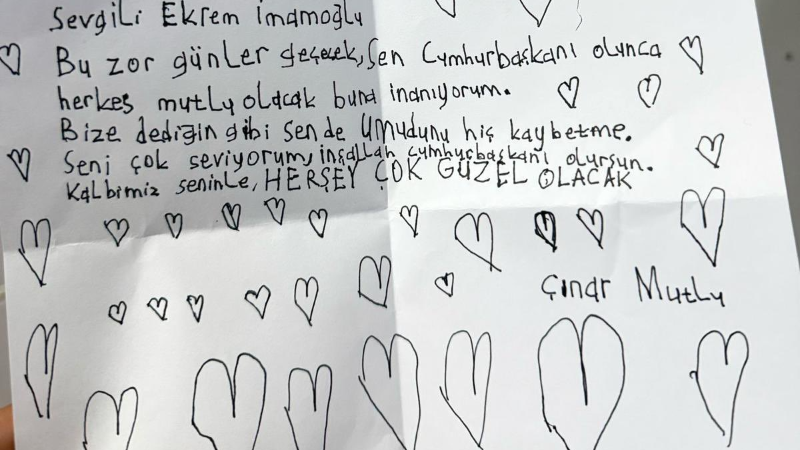 Sevgili Ekrem İmamoğlu
Bu zor günler geçecek, Sen Cumhurbaşkanı olunca
herkes mutlu olacak buna inanıyorum.
Bize dediğin gibi Sen de Umudunu hiç kaybetme.
Seni çok seviyorum, inşallah cumhurbaşkanı olursun.
Kalbimiz seninle, HERŞEY ÇOK GÜZEL OLACAK
Çınar Mutlu